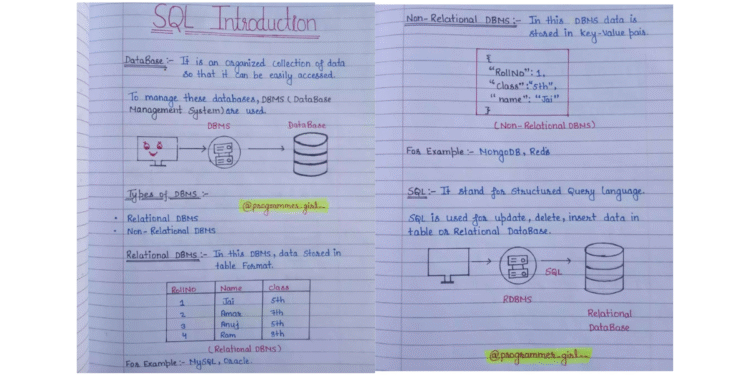 SQL Introduction
DataBase :- It is an organized collection of data
so that it can be easily accessed.
To manage these databases, DBMS (DataBase
Management System) are used.
DBMS
DataBase
Types of DBMS :-
@programmer_girl__
• Relational DBMS
• Non-Relational DBMS
Relational DBMS :- In this DBMS, data stored in
table Format.
RollNo Name Class
1 Jai 5th
2 Amar 7th
3 Anuj 5th
4 Ram 8th
(Relational DBMS)
For Example :- MySQL, Oracle.
Non-Relational DBMS :- In this DBMS data is
stored in key-value pair.
{
"RollNo": 1,
"class": "5th",
"name": "Jai"
}
(Non-Relational DBMS)
For Example :- MongoDB, Redis
SQL :- It stand for Structured Query Language.
SQL is used for update, delete, insert data in
table or Relational DataBase.
SQL
RDBMS
Relational
DataBase
@programmer_girl__